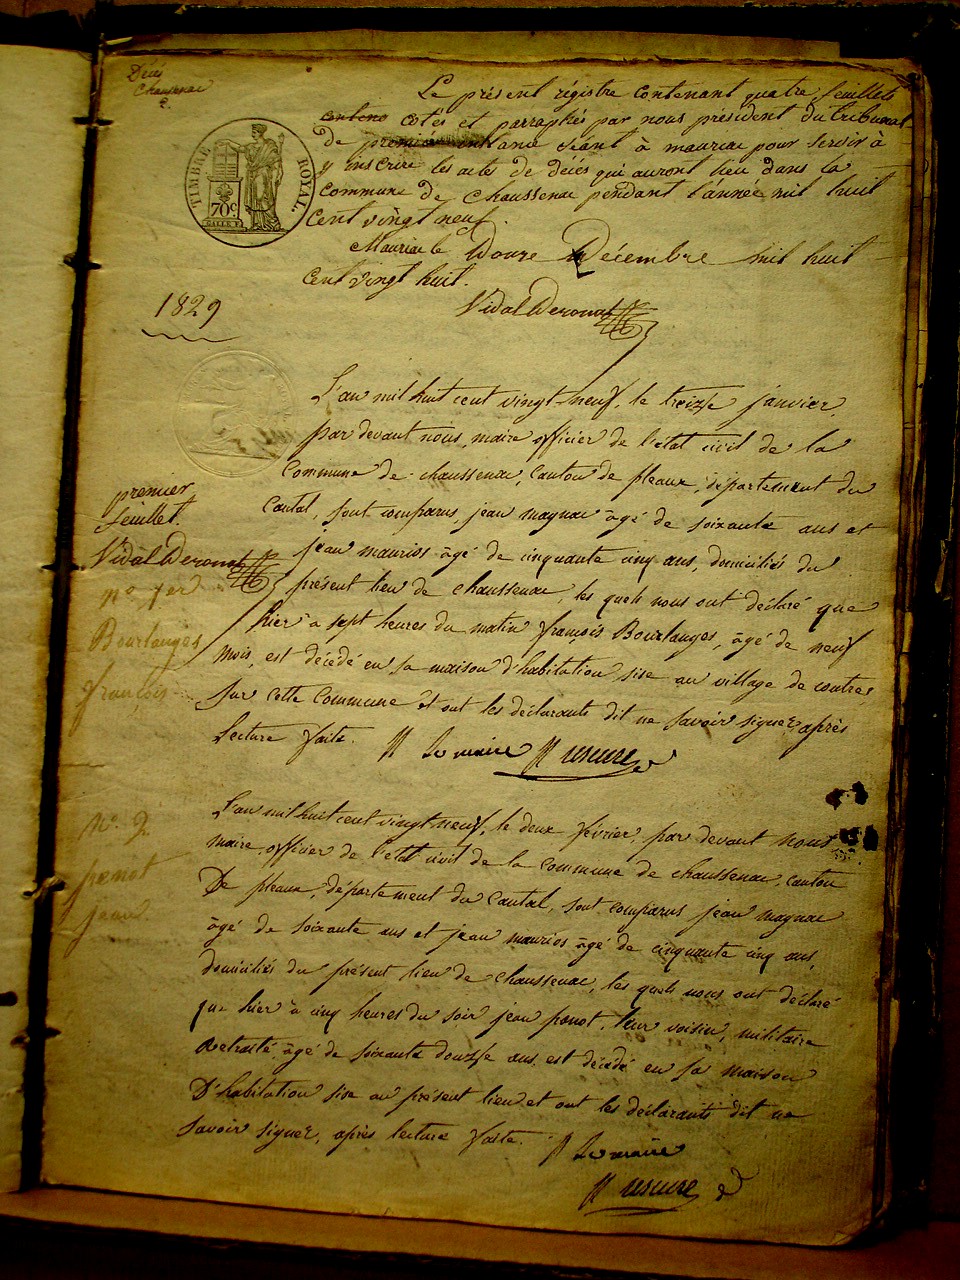 Décès
Chaussenac
Le présent régistre contenant quatre feuillets
conteno cotés et parraphés par nous président du tribunal
de première instance séant à mauriac pour servir à
y inscrire les actes de décès qui auront lieu dans la
commune de chaussenac pendant l'année mil huit
cent vingt neuf.
Mauriac le Douze Décembre mil huit
cent vingt huit.
TIMBRE ROYAL.
70c
1829
L'an mil huit cent vingt-neuf, le treizse janvier,
par devant nous, maire officier de l'état civil de la
Commune de chaussenac, canton de pleaux, département du
Cantal, sont comparus, jean magnac âgé de soixante ans et
jean maurios âgé de cinquante cinq ans, domiciliés du
présent lieu de chaussenac, les quels nous ont déclaré que
hier à sept heures du matin françois Bourlanges, âgé de neuf
mois, est décédé en sa maison d'habitation, sise au village de contres
sur cette commune et ont les déclarants dit ne savoir signer, après
Lecture faite. Le maire
premier
feuillet.
no 1er
Bourlanges
françois
No. 2
ponot
jean
L'an mil huit cent vingt-neuf, le deux février, par devant nous
maire officier de l'état civil de la commune de chaussenac, canton
De pleaux, département du Cantal, sont comparus jean magnac
âgé de soixante ans et jean maurios âgé de cinquante cinq ans,
domiciliés du présent lieu de chaussenac, les quels nous ont déclaré
que hier à cinq heures du soir jean ponot, leur voisin, militaire
Retraité, âgé de soixante douzse ans est décédé en sa maison
D'habitation sise au présent lieu et ont les déclarants dit ne
savoir signer, après lecture faite. Le maire